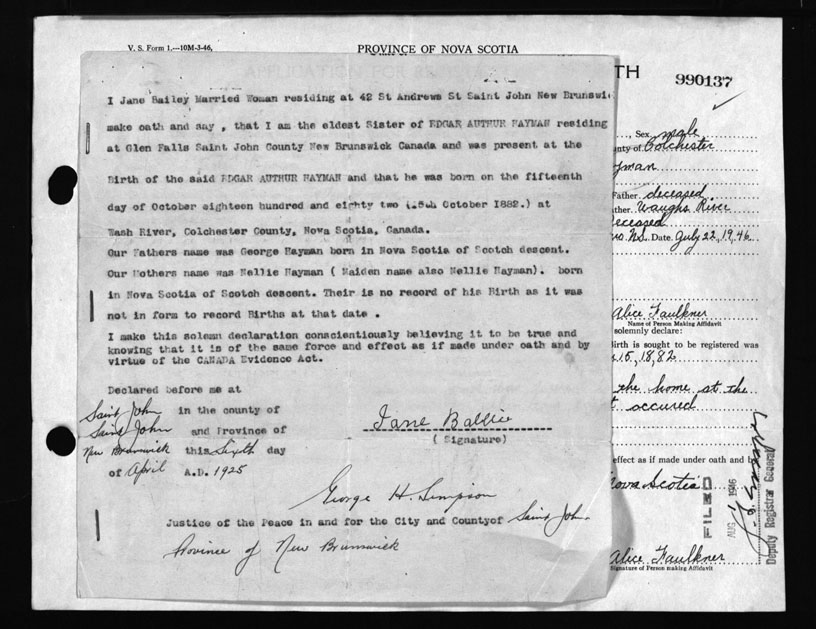 V. S. Form 1.—10M-3-46,
PROVINCE OF NOVA SCOTIA
APPLICATION FOR
TH
990137
I Jane Bailey Married Woman residing at 42 St Andrews St Saint John New Brunswi
make oath and say , that I am the eldest Sister of EDGAR AUTHUR HAYMAN residing
at Glen Falls Saint John County New Brunswick Canada and was present at the
Birth of the said EDGAR AUTHUR HAYMAN and that he was born on the fifteenth
day of October eighteen hundred and eighty two (15th October 1882.) at
Wash River, Colchester County, Nova Scotia, Canada.
Our Fathers name was George Hayman born in Nova Scotia of Scotch descent.
Our Mothers name was Nellie Hayman ( Maiden name also Nellie Hayman). born
in Nova Scotia of Scotch descent. Their is no record of his Birth as it was
not in form to record Births at that date .
I make this solemn declaration conscientiously believing it to be true and
knowing that it is of the same force and effect as if made under oath and by
virtue of the CANADA Evidence Act.
Declared before me at
Saint John in the county of
Saint John and Province of
New Brunswick this Sixth day
of April A.D. 1925
Jane Ballie
( Signature)
George H. Simpson
Justice of the Peace in and for the City and Countyof Saint John
Province of New Brunswick
, Sex male
nty of Colchester
yman
Father deceased
ther Waughs River
eceased
N.S. Date July 22, 19 46
Alice Faulkner
Name of Person Making Affidavit
solemnly declare:
irth is sought to be registered was
15, 18,82
the home at the
t occured
effect as if made under oath and by
Nova Scotia
FILED
AUG 1 1946
Deputy Registrar General
Alice Faulkner
Signature of Person making Affidavit